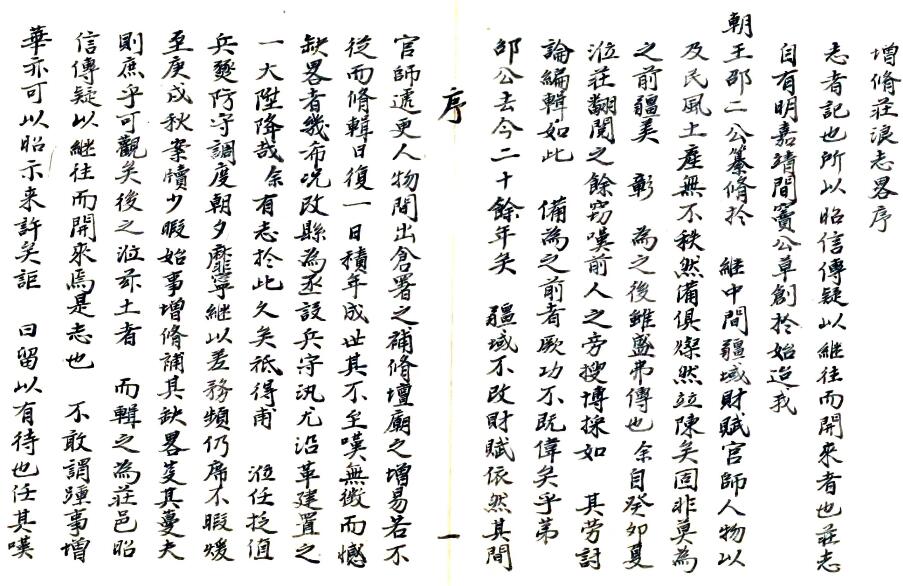 增脩莊浪志畧序
志者記也所以昭信傳疑以繼往而開來者也莊志
自有明嘉靖間竇公草創扵始迨我
朝王邵二公纂脩扵 繼中間疆域財賦官師人物以
及民風土產無不秩然備俱燦然竝陳矣固非莫為
之前疆美 彰 為之後雖盛弗傳也 余自癸卯夏
涖莊翻閱之餘窃嘆前人之旁搜博採如 其劳討
論編輯如此 備為之前者厥功不既偉矣乎第
邵公去今二十餘年矣 疆域不改財賦依然其間
序
一
官師遞更人物間出倉署之補脩壇廟之增易若不
從而脩輯日復一日積年成世其不至嘆無徵而憾
缺畧者幾希况改縣為丞設兵守汛尤沿革建置之
一大陞降哉余有志扵此久矣祇得甫 涖任挍值
兵燹防守調度朝夕靡寧継以差務頻仍席不暇煖
至庚戌秋案牘少暇始事增脩誧其缺畧芟其蔓夫
則庶乎可觀矣後之涖茲土者 而輯之為莊邑昭
信傳疑以継往而開來焉是志也 不敢謂踵事增
華亦可以昭示来許矣詎 曰留以有待也任其嘆